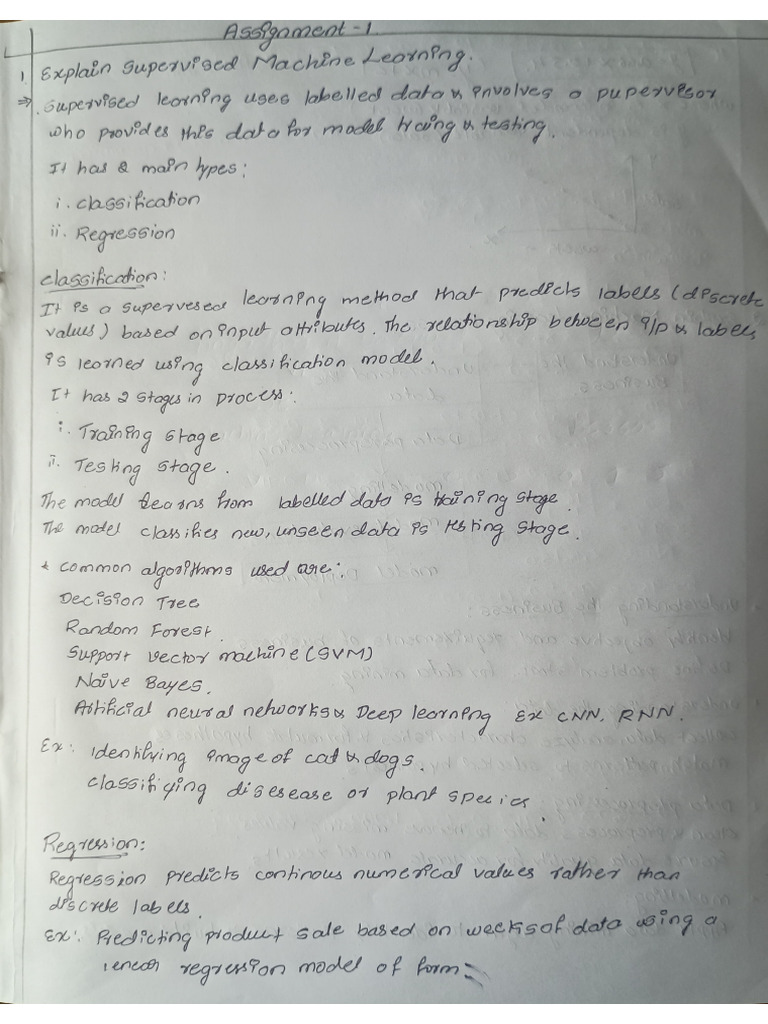 Assignment-1
1. Explain Supervised Machine Learning.
⇒ Supervised learning uses labelled data & involves a pupervisor
who provides this data for model traing & testing.
It has 2 main types:
i. classification
ii. Regression
classification:
It is a supervesed learning method that predicts labels (discrete
values) based on input attributes. The relationship between i/p & labels
is learned using classification model.
It has 2 stages in process:
i. Training stage
ii. Testing stage.
The model learns from labelled data is training stage.
The model classifies new, unseen data is testing stage.
* common algorithms used are:
Decision Tree
Random Forest.
Support vector machine (SVM)
Naive Bayes.
Artificial neural networks & Deep learning Ex CNN, RNN.
Ex: identifying image of cat & dogs.
classificying disesease or plant species.
Regression:
Regression predicts continous numerical values rather than
discrete labels.
Ex: Predicting product sale based on weeks of data using a
linear regression model of form:-